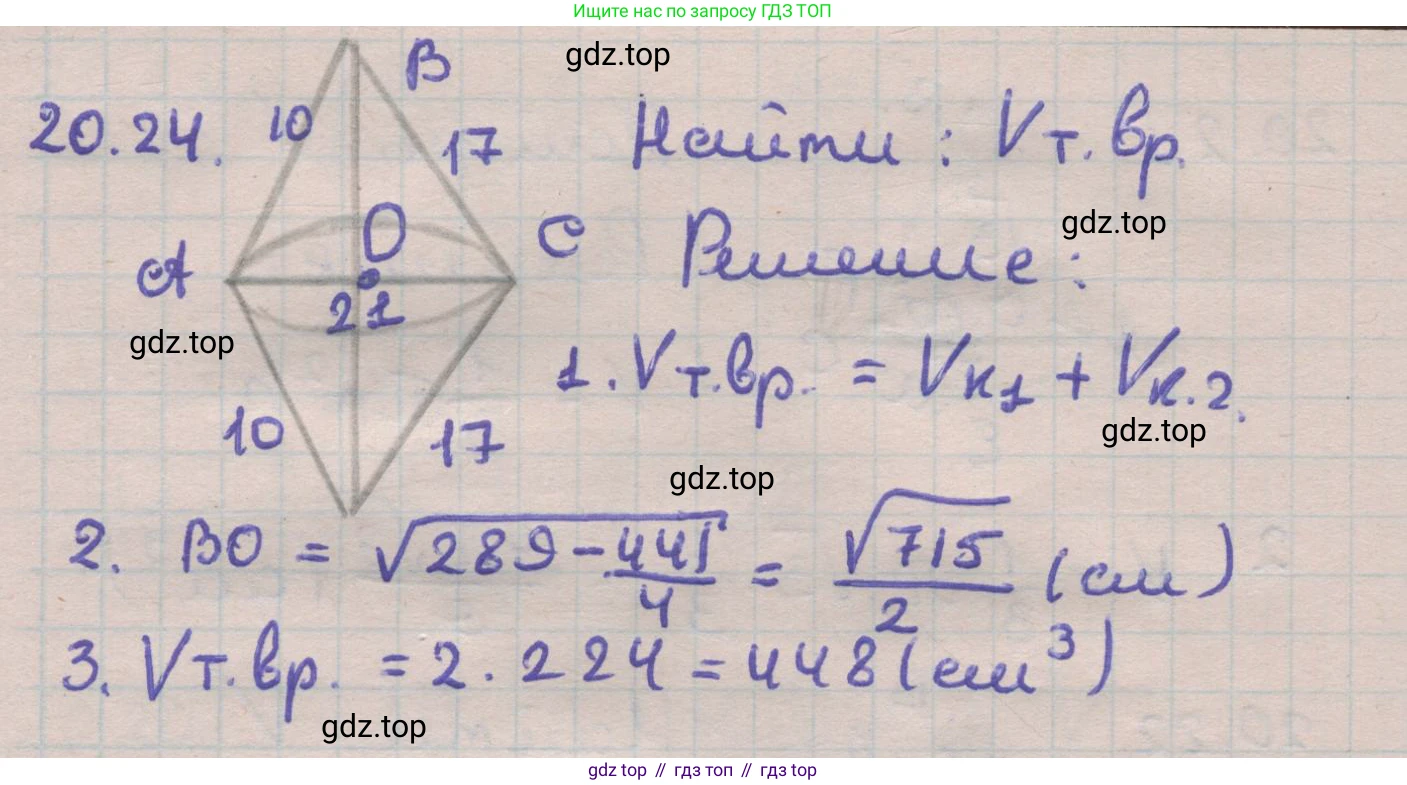 Ищите нас по запросу ГДЗ ТОП
gdz.top
20.24.
B
10
17
Найти : Vт.вр.
gdz.top
O
C
A
21
Решение :
gdz.top
1. Vт.вр. = Vк1 + Vк.2.
10
17
gdz.top
gdz.top
2. BO = √289 - 441/4 = √715/2 (см)
3. Vт.вр. = 2 · 224 = 448 (см³)
gdz.top
gdz top // гдз топ // gdz top